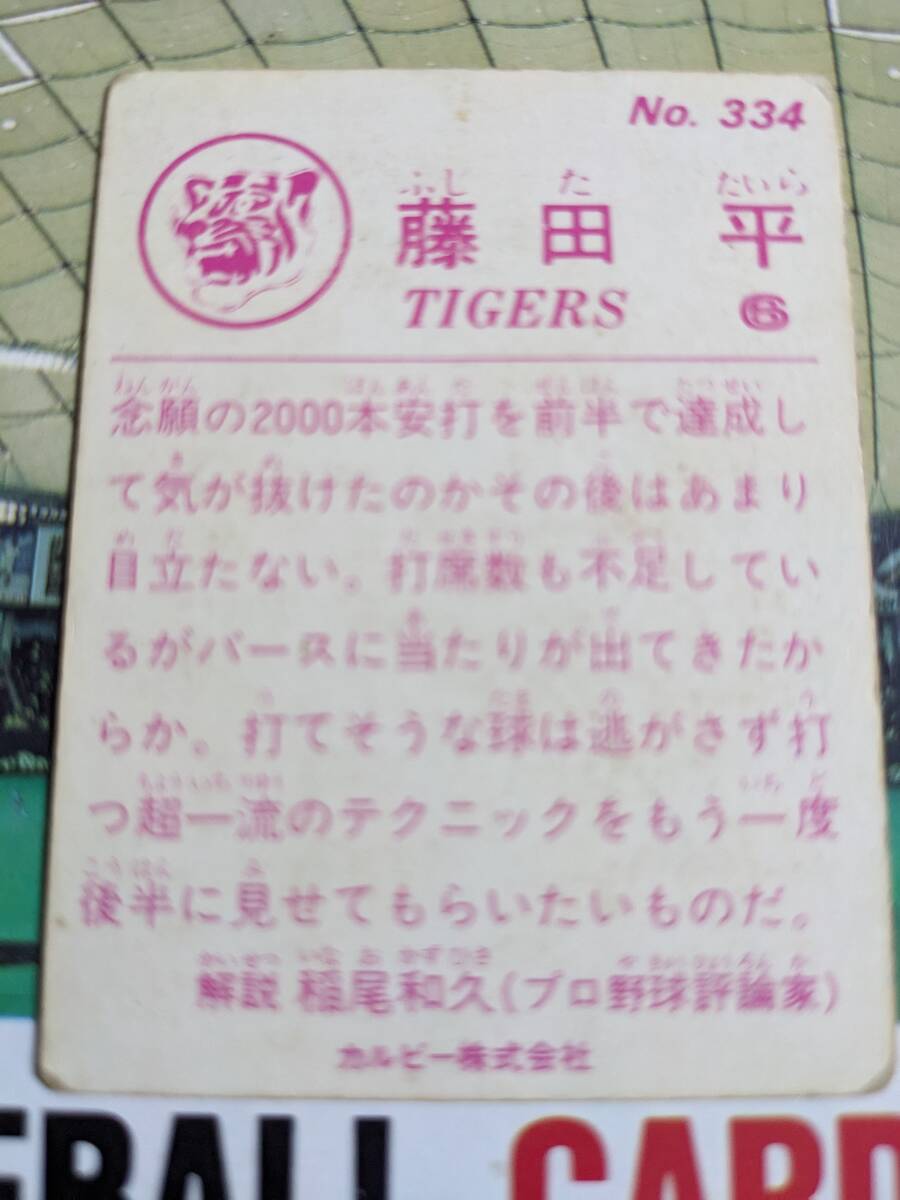 No. 334
ふじ た たいら
藤田 平
TIGERS 6
念願の2000本安打を前半で達成し
て気が抜けたのかその後はあまり
目立たない。打席数も不足してい
るがバースに当たりが出てきたか
らか。打てそうな球は逃がさず打
つ超一流のテクニックをもう一度
後半に見せてもらいたいものだ。
解説 稲尾和久(プロ野球評論家)
カルビー株式会社
BALL CARD